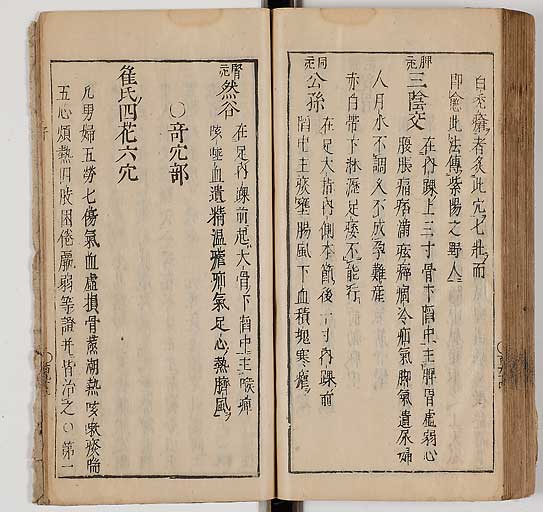 白禿瘡者灸此穴七壯而
即愈此法傳紫陽之野人
脾穴 三陰交 在內踝上三寸骨下陷中主脾胃虛弱心
腹脹痛痞滿痃癖癇冷疝氣脚氣遺尿婦
人月水不調久不成孕難產
赤白帶下淋瀝足痿不能行
同穴 公孫 在足大指內側本節後一寸內踝前
陷中主痰壅腸風下血積塊寒瘧
腎穴 然谷 在足內踝前起大骨下陷中主喉痺
咳唾血遺精溫瘧疝氣足心熱臍風
〇奇穴部
崔氏四花六穴
凡男婦五勞七傷氣血虛損骨蒸潮熱咳嗽痰喘
五心煩熱四肢困倦羸弱等證并皆治之〇第一